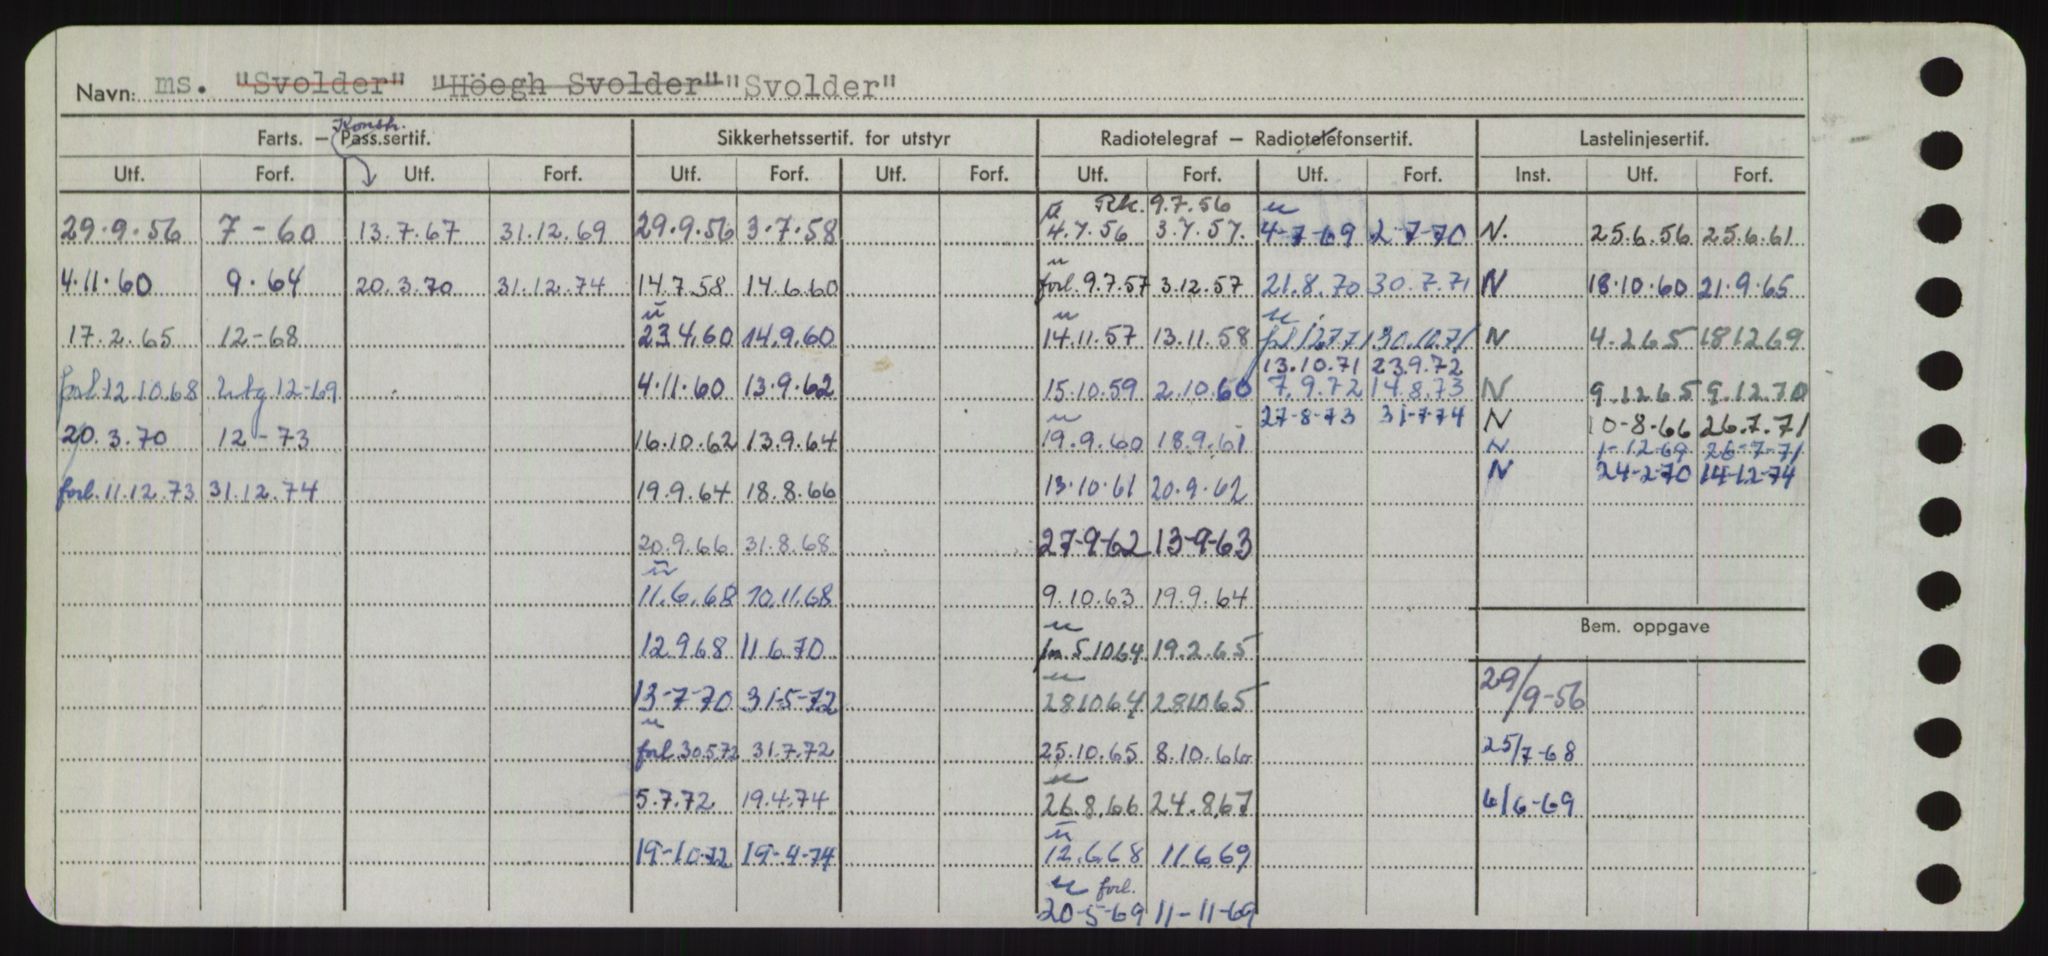 Navn: ms. "Svolder" "Höegh Svolder" "Svolder"
Konstr.
Farts. — Pass.sertif. Sikkerhetssertif. for utstyr Radiotelegraf — Radiotelefonsertif. Lastelinjesertif.
Utf. Forf. Utf. Forf. Utf. Forf. Utf. Forf. Utf. Forf. Utf. Forf. Inst. Utf. Forf.
u Rk. 9.7.56 u
29.9.56 7-60 13.7.67 31.12.69 29.9.56 3.7.58 4.7.56 3.7.57. 4-7-69 2-7-70 N. 25.6.56 25.6.61
u
4.11.60 9.64 20.3.70 31.12.74 14.7.58 14.6.60 forl. 9.7.57 3.12.57 21.8.70 30.7.71 N 18.10.60 21.9.65
u u u
17.2.65 12-68 23.4.60 14.9.60 14.11.57 13.11.58 forl 12.7.71 30.10.71 N 4.2.65 18.12.69
13.10.71 23.9.72
forl 12.10.68 utg 12-69 4.11.60 13.9.62 15.10.59 2.10.60 7.9.72 14.8.73 N 9.12.65 9.12.70
u 27-8-73 31-7-74 N 10-8-66 26.7.71
20.3.70 12-73 16.10.62 13.9.64 19.9.60 18.9.61 N 1-12-69 26-7-71
forl. 11.12.73 31.12.74 19.9.64 18.8.66 13.10.61 20.9.62 N 24-2-70 14-12-74
20.9.66 31.8.68 27-9-62 13-9-63
u
11.6.68 10.11.68 9.10.63 19.9.64
u Bem. oppgave
12.9.68 11.6.70 5.10.64 19.2.65
u
13-7-70 31-5-72 28.10.64 28.10.65 29/9-56
u
forl 30.5.72 31.7.72 25.10.65 8.10.66 25/7-68
u
5.7.72 19.4.74 26.8.66 24.8.67 6/6-69
u
19-10-72 19-4-74 12.6.68 11.6.69
u forl.
20-5-69 11-11-69